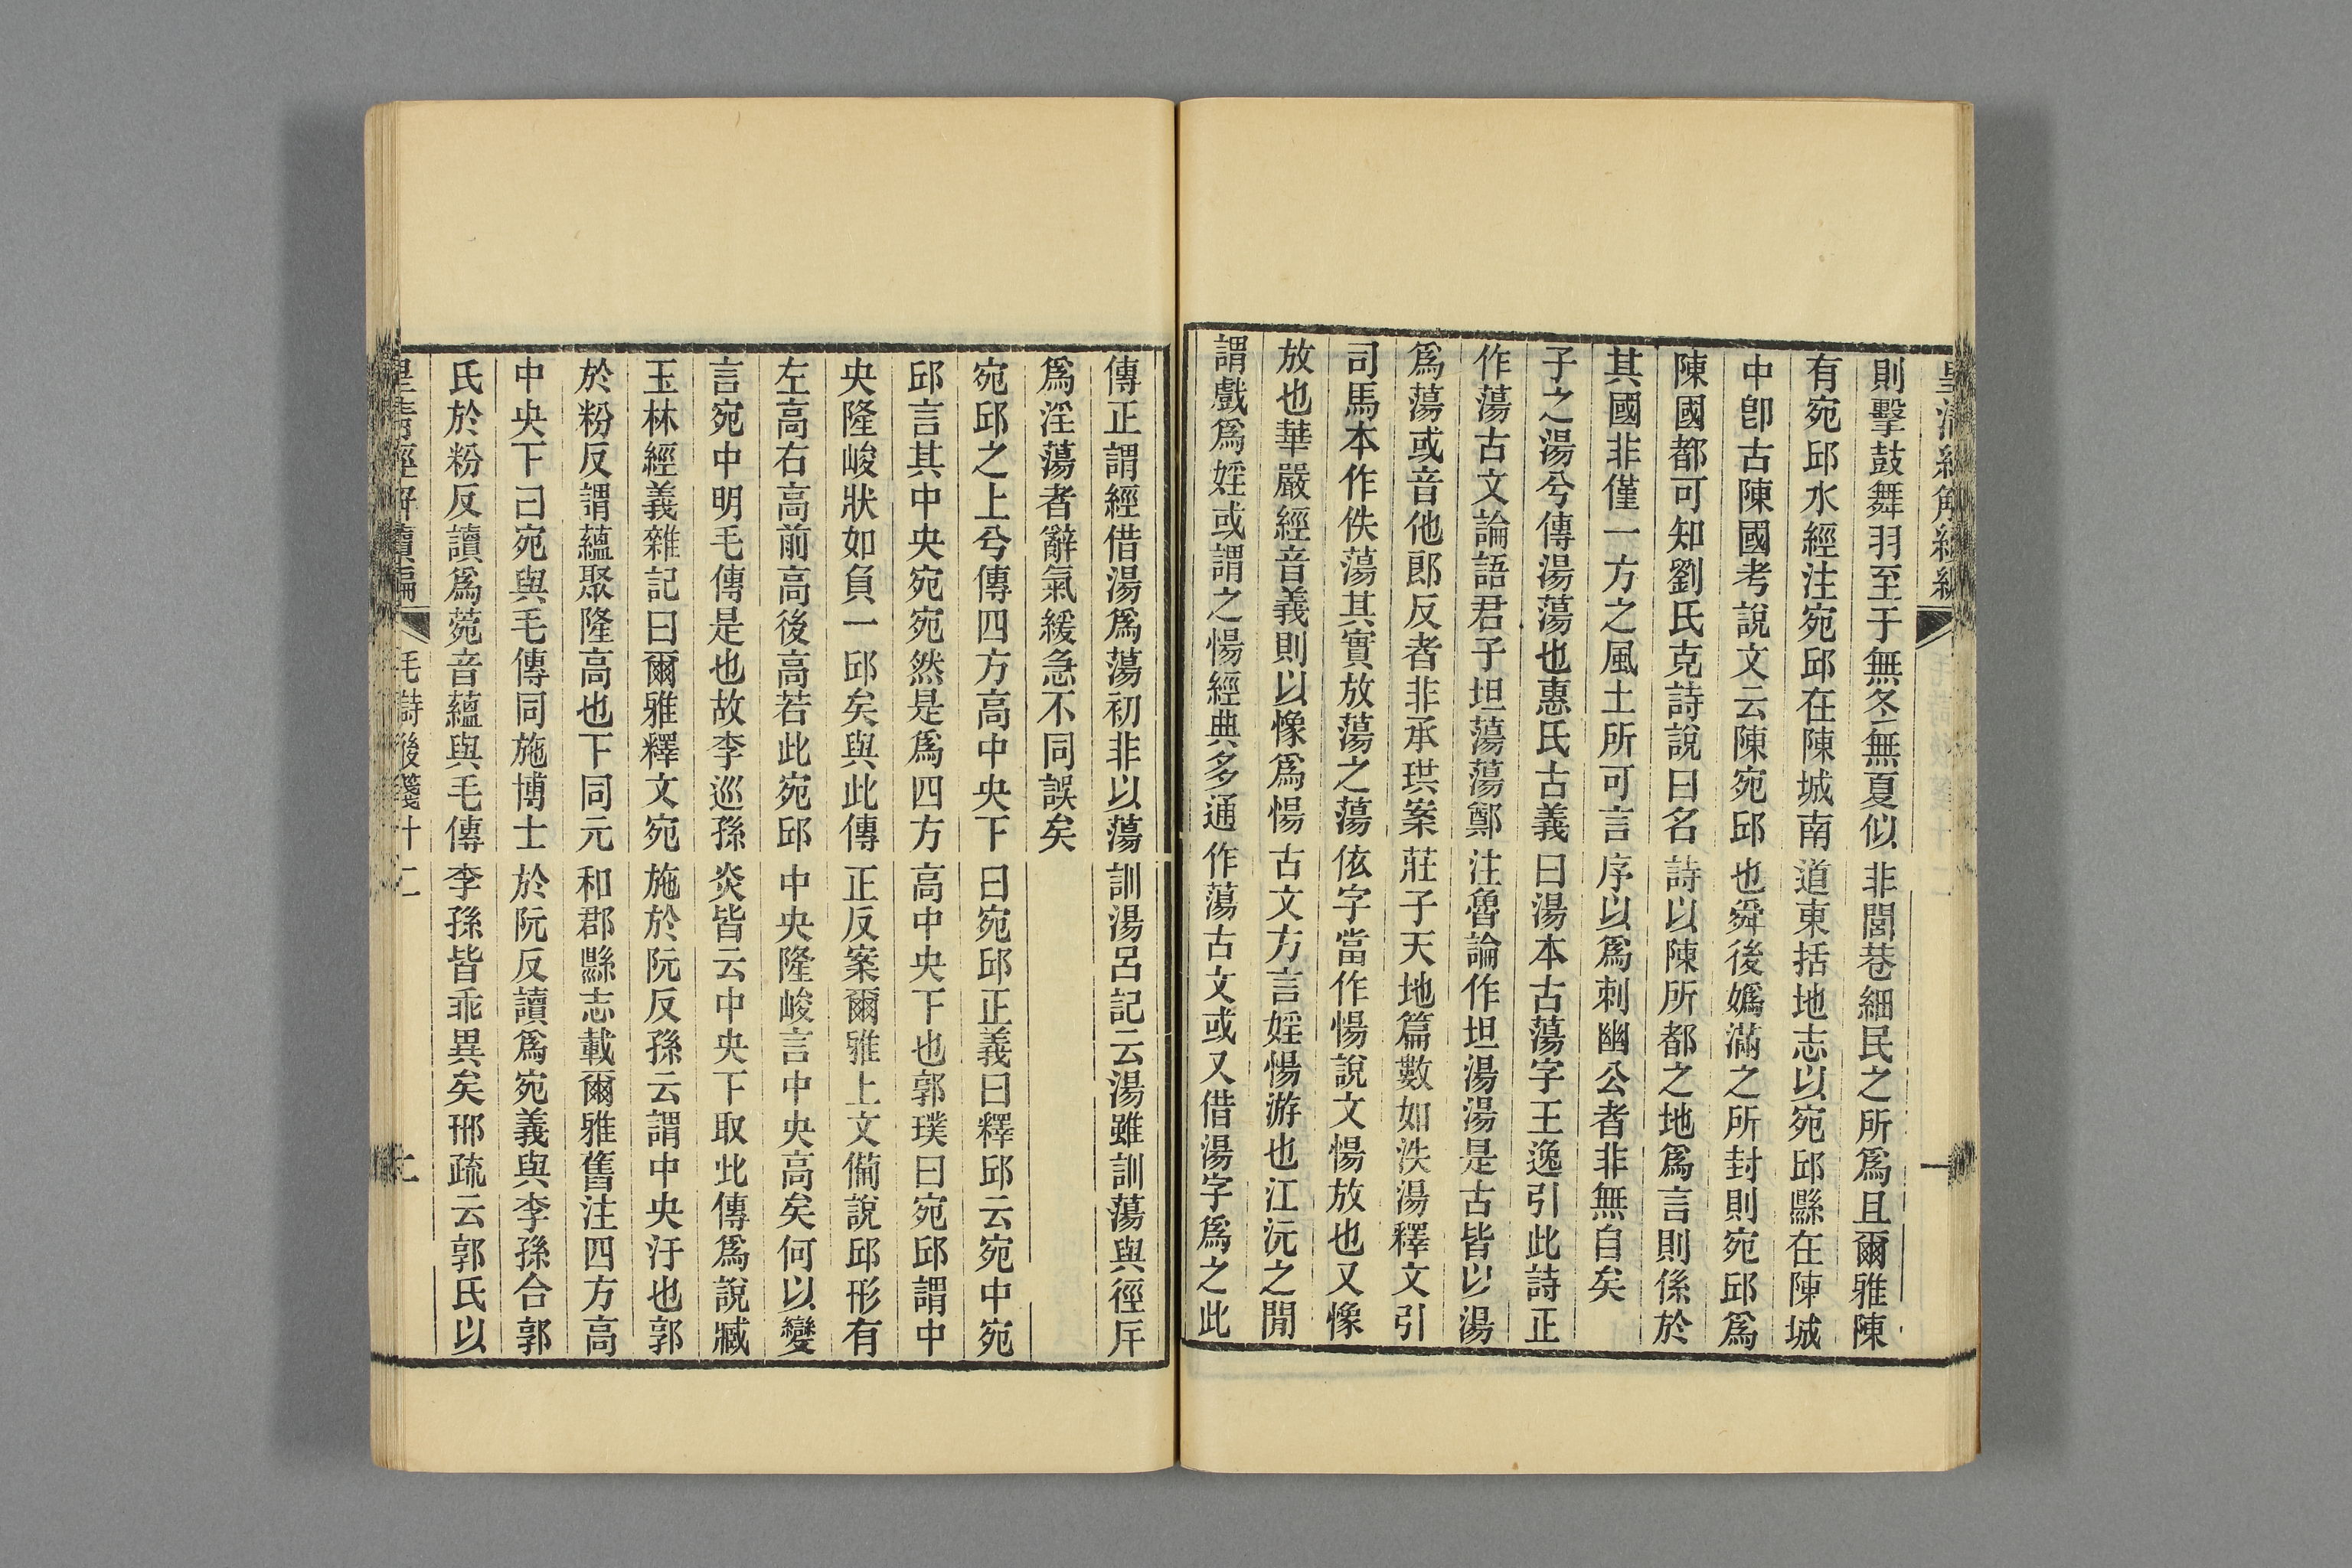 則擊鼓舞羽至于無冬無夏似非閭巷細民之所爲且爾雅陳
有宛邱水經注宛邱在陳城南道東括地志以宛邱縣在陳城
中卽古陳國考說文云陳宛邱也舜後嬀滿之所封則宛邱爲
陳國都可知劉氏克詩說曰名詩以陳所都之地爲言則係於
其國非僅一方之風土所可言序以爲刺幽公者非無自矣
子之湯兮傳湯蕩也惠氏古義曰湯本古蕩字王逸引此詩正
作蕩古文論語君子坦蕩蕩鄭注魯論作坦湯湯是古皆以湯
爲蕩或音他郎反者非承珙案莊子天地篇數如泆湯釋文引
司馬本作佚蕩其實放蕩之蕩依字當作愓說文愓放也又像
放也華嚴經音義則以像爲愓古文方言婬愓游也江沅之閒
謂戲爲婬或謂之愓經典多通作蕩古文或又借湯字爲之此
傳正謂經借湯爲蕩初非以蕩訓湯呂記云湯雖訓蕩與徑斥
爲淫蕩者辭氣緩急不同誤矣
宛邱之上兮傳四方高中央下曰宛邱正義曰釋邱云宛中宛
邱言其中央宛宛然是爲四方高中央下也郭璞曰宛邱謂中
央隆峻狀如負一邱矣與此傳正反案爾雅上文備說邱形有
左高右高前高後高若此宛邱中央隆峻言中央高矣何以變
言宛中明毛傳是也故李巡孫炎皆云中央下取此傳爲說臧
玉林經義雜記曰爾雅釋文宛施於阮反孫云謂中央汙也郭
於粉反謂蘊聚隆高也下同元和郡縣志載爾雅舊注四方高
中央下曰宛與毛傳同施博士於阮反讀爲宛義與李孫合郭
氏於粉反讀爲菀音蘊與毛傳李孫皆乖異矣邢疏云郭氏以
毛詩後箋十二